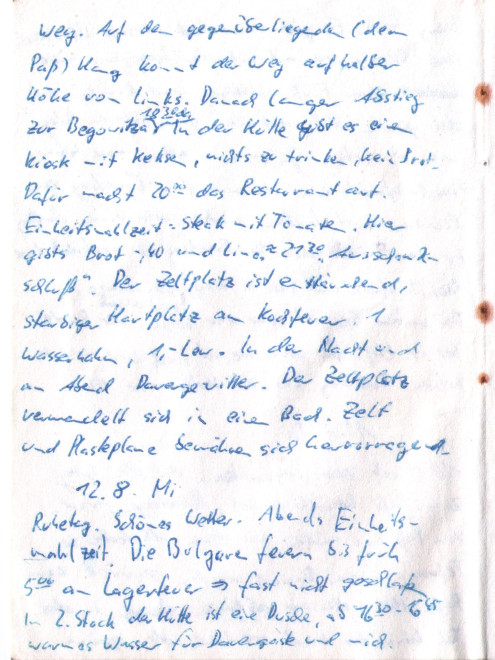 Weg. Auf dem gegenüberliegenden (dem
Paß) Hang kommt der Weg auf halber
Höhe von links. Danach langer Abstieg
zur Begovitza. In der Hütte gibt es einen
Kiosk mit Keksen, nichts zu trinken, kein Brot.
Dafür macht 20⁰⁰ das Restaurant auf.
Einheitsmahlzeit - Steak mit Tomaten. Hier
gibts Brot -,40 und Limo. 21³⁰ "Ausschank-
schluß". Der Zeltplatz ist enttäuschend,
staubiger Hartplatz am Kochfeuer. 1
Wasserhahn, 1,- Lew. In der Nacht und
am Abend Dauergewitter. Der Zeltplatz
verwandelt sich in einen Bach. Zelt
und Plasteplane bewähren sich hervorragend.
12. 8. Mi
Ruhetag. Schönes Wetter. Abends Einheits-
mahlzeit. Die Bulgaren feiern bis früh
5⁰⁰ am Lagerfeuer ⇒ fast nicht geschlafen
Im 2. Stock der Hütte ist eine Dusche, ab 16³⁰ - 16⁴⁵
warmes Wasser für Dauergäste und mich.